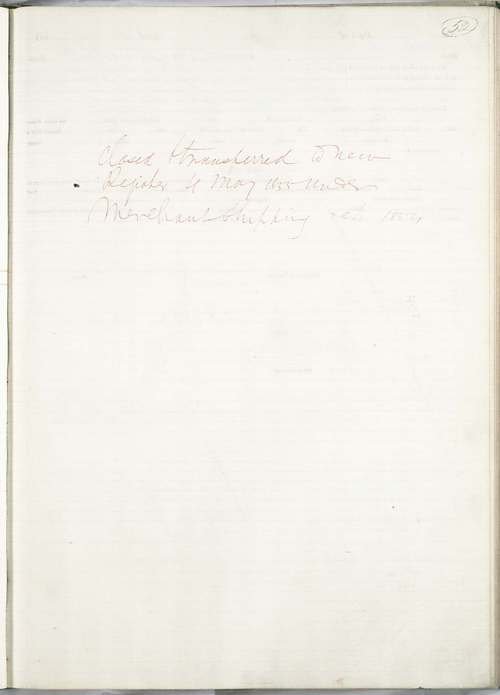 52
Closed & transferred to new
Register 4 May 1855 under
Merchant Shipping Act 1854